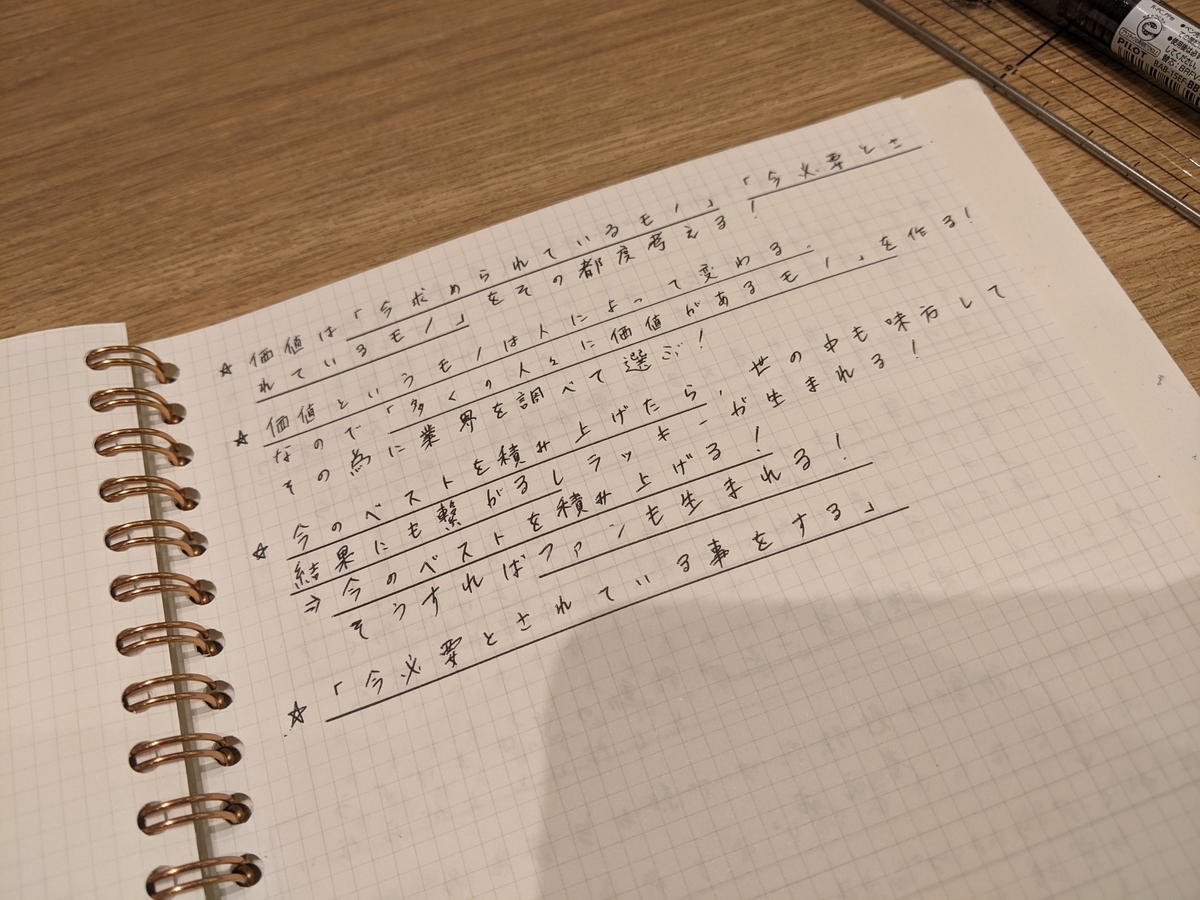 ☆ 価値は「今求められているモノ」「今必要とさ
れているモノ」をその都度考える!
☆ 価値というモノは人によって変わる.
なので「多くの人々に価値があるモノ」を作る!
その為に業界を調べて選ぶ!
☆ 今のベストを積み上げたら、世の中も味方して
結果にも繋がるしラッキーが生まれる!
⇒ 今のベストを積み上げる!
そうすればファンも生まれる!
☆ 「今必要とされている事をする」
PILOT
BAB-15EF-BB